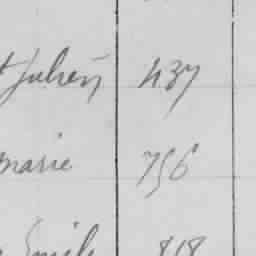 t Julien 437
Marie 756
Emile 818